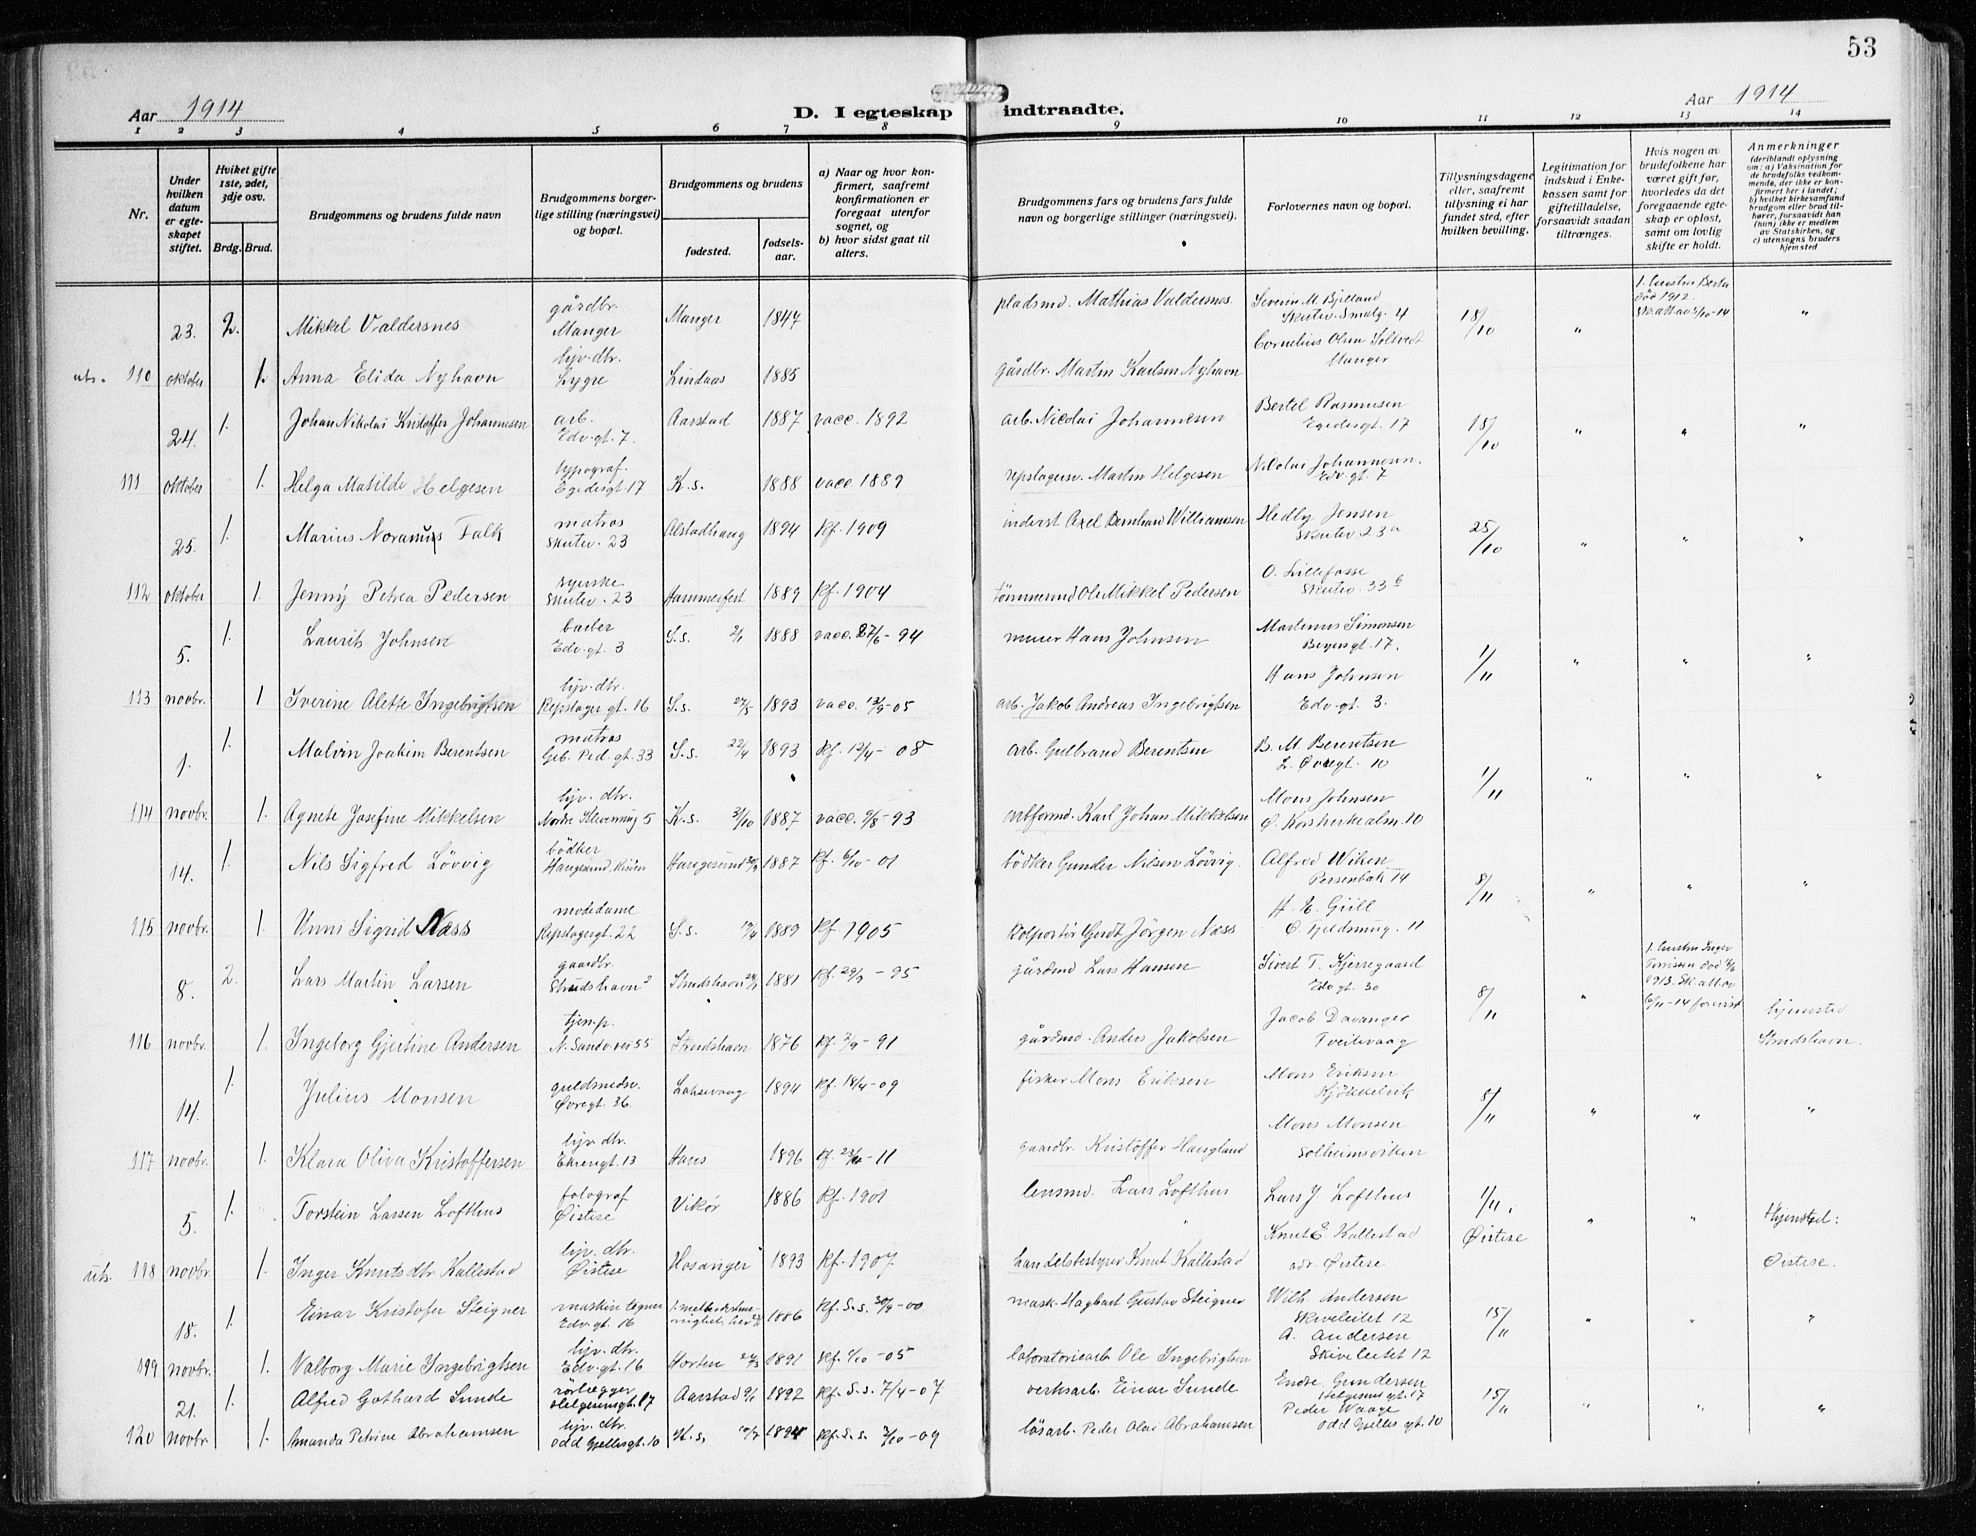 53
Aar 1914
D. I egteskap indtraadte.
Aar 1914
1 2 3 4 5 6 7 8 9 10 11 12 13 14
Nr.
Under hvilken datum er egteskapet stiftet.
Hviket gifte 1ste, 2det, 3dje osv.
Brdg. Brud.
Brudgommens og brudens fulde navn
Brudgommens borgerlige stilling (næringsvei) og bopæl.
Brudgommens og brudens
fødested.
fødselsaar.
a) Naar og hvor konfirmert, saafremt konfirmationen er foregaat utenfor sognet, og
b) hvor sidst gaat til alters.
Brudgommens fars og brudens fars fulde navn og borgerlige stillinger (næringsvei).
Forlovernes navn og bopæl.
Tillysningsdagene eller, saafremt tillysning ei har fundet sted, efter hvilken bevilling.
Legitimation for indskud i Enkekassen samt for giftetilladelse, forsaavidt saadan tiltrænges.
Hvis nogen av brudefolkene har været gift før, hvorledes da det foregaaende egteskap er opløst, samt om lovlig skifte er holdt.
Anmerkninger
(deriblandt oplysning om: a) Vaksination for de brudefolks vedkommende, der ikke er konfirmert her i landet; b) hvilket kirkesamfund brudgom eller brud tilhører, forsaavidt han (hun) ikke er medlem av Statskirken, og c) utensogns bruders hjemsted
23. 2. Mikkel Valdersnes gårdbr. Manger Manger 1847 pladsmd. Mathias Valdersnes Severin M. Bjelland Skutev. Smalg. 4 18/10 " død 1912. "
Cornelius Olsen Manger
uts. 110 oktober 1. Anna Elida Nyhavn lijv. dtr. Lygre Lindaas 1885 gårdbr. Martin Karlsen Nyhavn
24. 1. Johan Nikolai Kristoffer Johannesen arb. Edv. gt. 7. Aarstad 1887 vacc. 1892 arb. Nicolai Johannesen Bertel Rasmusen Egedesgt. 17 18/10 " " "
111 oktober 1. Helga Matilde Helgesen typograf. Egedesgt 17 K.s. 1888 vacc 1889 Martin Helgesen Nicolai Johannesen. Edv. gt 7
25. 1. Marius Falk matros Skutev. 23 Alstadhaug 1894 Kf. 1909 inderst Axel Bernhard Williamssen Hedly Jensen Skutev 23a 25/10 " " "
112 oktober 1. Jenny Petrea Pedersen syerske Skutev. 23 Hammerfest 1889 Kf. 1904 tømmermd Ole Mikkel Pedersen O. Lillefosse Skutev. 33b
5. 1. Laurits Johnsen barber Edv. gt 3 S.s. 2/1 1888 vacc. 27/6-94 murer Hans Johnsen Martinus Simonsen 17. 1/11 " " "
Hans Johnsen
113 novbr. 1 Iverine Alette Ingebrigtsen lijv. dtr. Repslager gt. 16 S.s. 27/5 1893 vacc. 13/9-05 arb. Jakob Andreas Ingebrigtsen Edv. gt 3.
1. 1. Malvin Joachim Berentsen matros Geb. Ped. gt. 33 S.s. 22/4 1893 Kf. 12/4-08 arb. Gulbrand Berentsen B. M. Berentsen L. Øvregt. 10 1/11 " " "
114 novbr. 1. Agnete Josefine Mikkelsen lijv. dtr. 5 K.s. 31/10 1887 vacc. 9/8-93 arbformd. Karl Johan Mikkelsen Mons Johnsen Ø. Korskirkealm. 10
14. 1. Nils Sigfred Lövvig bödker Haugesund Haugesund 1887 Kf. 6/10-01 bödker Gunder Nilsen Lövvig. Alfred Wiken Persenbak 14 8/11 " " "
115 novbr. 1. Unni Sigrid Næss modedame Repslagergt. 22 S.s. 1889 Kf. 1905 Kolportör Gerdt Jörgen Næss H. E. Grill 11
8. 2. Lars Martin Larsen gaardbr. Strudshavn Strudshavn 1881 Kf. 29/9-95 gårdmd Lars Hansen Sivert T. Kjerregaard Edv gt. 30 8/11 " 1913. Hjemsted Strudshavn.
116 novbr. 1. Ingeborg Gjertine Andersen tjen.p. N. Sandv. vei 55 Strudshavn 1876 Kf. 2/9-91 gårdmd. Anders Jakobsen Jacob Davanger Tveitevaag
14. 1. Julius Monsen guldsmedsv. Øvregt. 36 Laksevaag 1894 Kf. 18/4-09 fisker Mons Eriksen Mons Eriksen Kjökkelvik 8/11 " " "
Mons Monsen
117 novbr. 1. Klara Oliva Kristoffersen lijv. dtr. Ekrengt. 13 Haus 1896 Kf. 23/10-11 gaardbr. Kristoffer Haugland Solheimsviken
5. 1. Torstein Larsen Lofthus fotograf Øistese Vikør 1886 Kf. 1901 lensmd. Lars Lofthus Lars J. Lofthus 1/11 i Øistese " " Hjemsted: Øistese.
uts. 118 novbr 1. Inger Knutsdtr Kallestad lijv. dtr. Øistese Hosanger 1893 Kf. 1907 handelsbestyrer Knut Kallestad Knut E. Kallestad adr. Øistese
18. 1. Einar Kristofer Steigner maskintegner Edv. gt. 16 1886 Kf. S.s. 30/9-00 mask. Hagbart Gustav Steigner Wilh. Andersen Skiveleitet 12 15/11 " " "
119 novbr. 1. Valborg Marie Ingebrigtsen lijv. dtr. Edv. gt. 16 Horten 1891 Kf. 1/10-05 laboratoriearb. Ole Ingebrigtsen A. Andersen Skiveleitet 12
21. 1. Alfred Gothard Sunde rörlægger Helgesensgt. 17 Aarstad 9/1 1892 Kf. S.s. 7/4-07 verksarb. Einar Sunde Endre Gundersen Helgesens gt. 17 15/11 " " "
120 novbr. 1. Amanda Petrine Abrahamsen lijv. dtr. Odd Gjellesgt. 10 K.s. 1894 Kf. S.s. 3/10-09 lösarb. Peder Olai Abrahamsen Peder Waage Odd Gjelles gt. 10